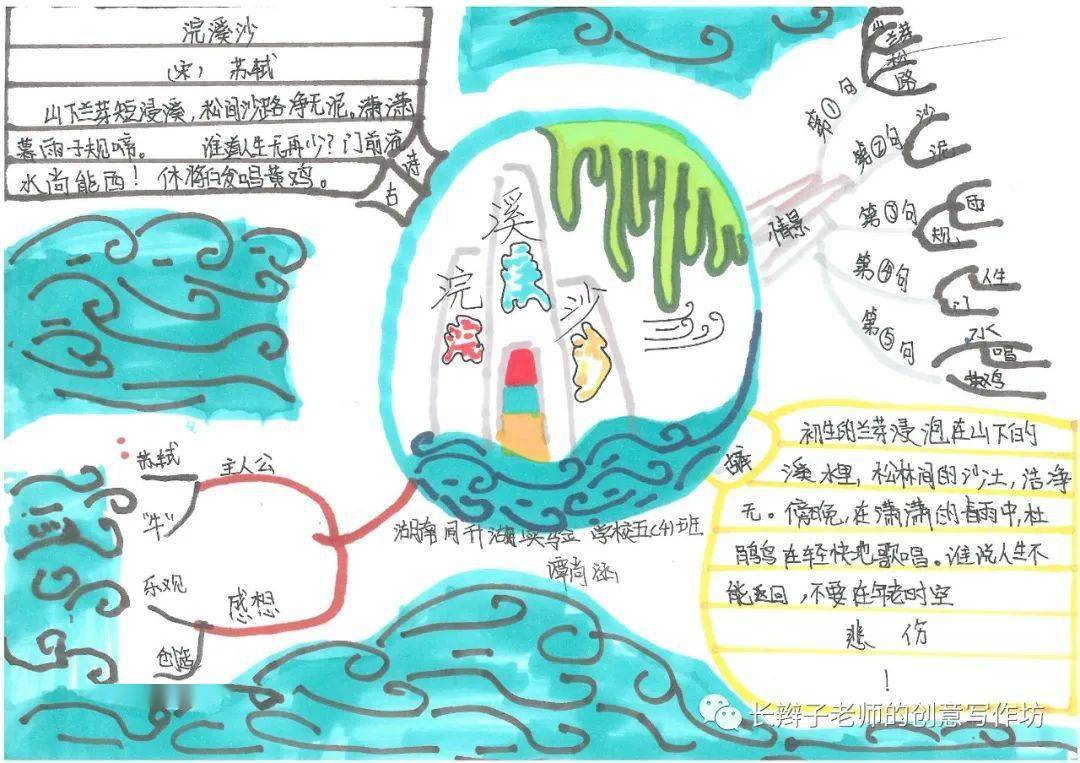 浣溪沙
（宋） 苏轼
山下兰芽短浸溪，松间沙路净无泥。潇潇
暮雨子规啼。 谁道人生无再少？门前流
水尚能西！休将白发唱黄鸡。
古诗
浣
溪
沙
情景
第①句
兰芽
松
路
第②句
沙
泥
第③句
雨
规
第④句
人生
门
第⑤句
水
唱
黄鸡
初生的兰芽浸泡在山下的
溪水里，松林间的沙土，洁净
无。傍晚，在潇潇的春雨中，杜
鹃鸟在轻快地歌唱。谁说人生不
能返回，不要在年老时空
悲 伤
！
湖南同升湖实验学校五(4)班
谭尚涵
主人公
苏轼
“牛”
感想
乐观
创造
长辫子老师的创意写作坊